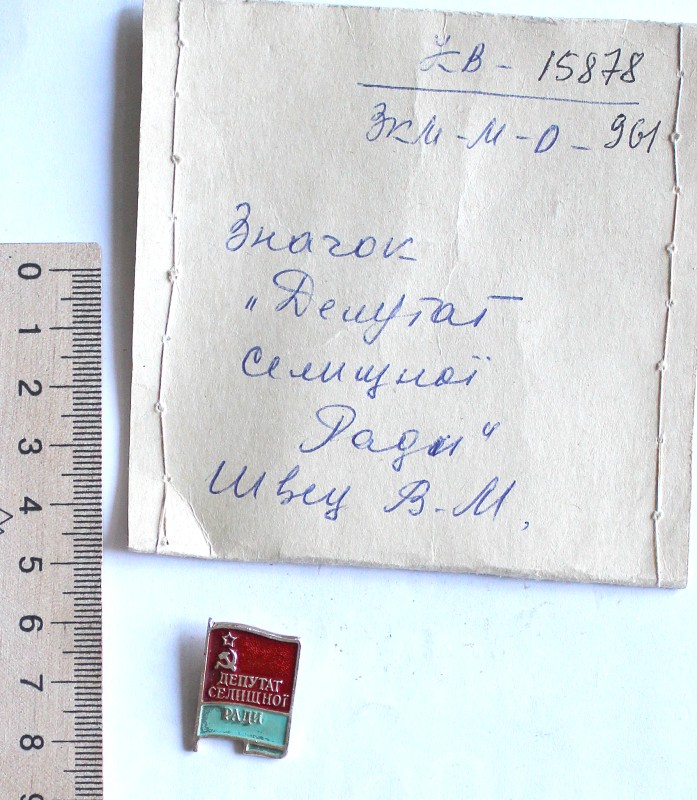 КВ - 15878
ЗКМ-М-О-961
Значок
„Депутат
селищної
Ради"
Швец В.М.
0
1
2
3
4
5
6
7
8
9
ДЕПУТАТ
СЕЛИЩНОЇ
РАДИ